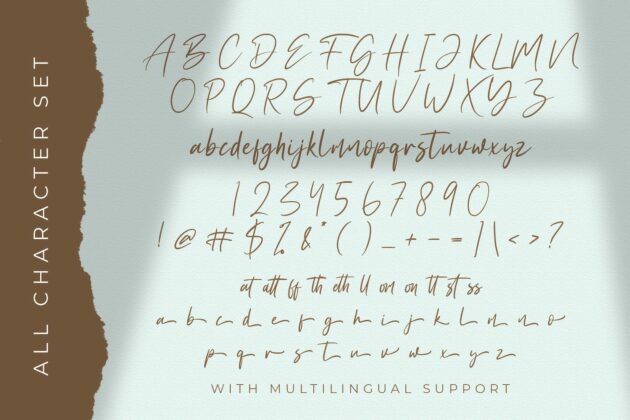 ALL CHARACTER SET
A B C D E F G H I J K L M N
O P Q R S T U V W X Y Z
abcdefghijklmnopqrstuvwxyz
1 2 3 4 5 6 7 8 9 0
! @ # $ % & * ( ) _ + - = / | \ < > ?
at att ff th eth ll om on tt st ss
a b c d e f g h i j k l m n o
p q r s t u v w x y z
WITH MULTILINGUAL SUPPORT